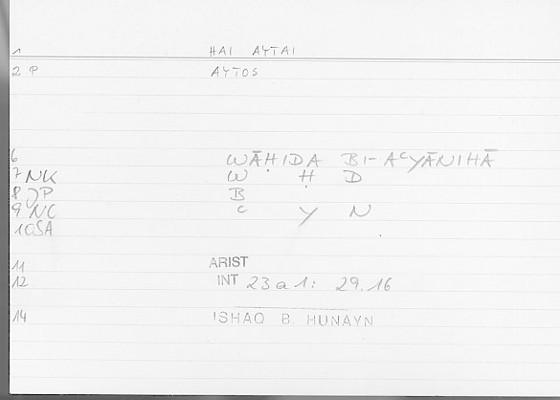 1 HAI AYTAI
2 P AYTOS
6 WĀḤIDA BI-AᶜYĀNIHĀ
7 NK W Ḥ D
8 JP B
9 NC ᶜ Y N
10 SA
11 ARIST
12 INT 23 a 1: 29.16
14 ISHAQ B. HUNAYN